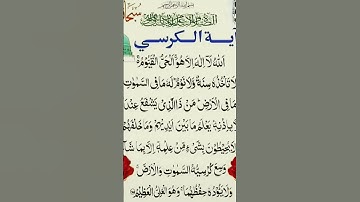 سُبْحَا
ية الكرسي
اَللهُ لَآ اِلٰهَ اِلَّا هُوَ اَلْحَىُّ الْقَيُّوْمُ
لَا تَاْخُذُهٗ سِنَةٌ وَّلَا نَوْمٌ لَهٗ مَا فِى السَّمٰوٰتِ
مَا فِى الْاَرْضِ مَنْ ذَا الَّذِىْ يَشْفَعُ عِنْدَ
بِاِذْنِهٖ يَعْلَمُ مَا بَيْنَ اَيْدِيْهِمْ وَمَا خَلْفَهُمْ
لَا يُحِيْطُوْنَ بِشَىْءٍ مِّنْ عِلْمِهٖٓ اِلَّا بِمَا شَآ
وَسِعَ كُرْسِيُّهُ السَّمٰوٰتِ وَالْاَرْضَ
وَلَا يَئُوْدُهٗ حِفْظُهُمَا وَهُوَ الْعَلِىُّ الْعَظِيْمُ